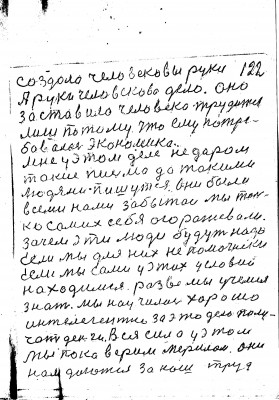 создала человековы руки 122
А руки человеково дело. Оно
заставило человека трудится
лиш потому, что ему потре-
бовалась Экономика.
Мне у этом деле недаром
такие письма да такими
людями пишутся, они были
всеми нами забытые мы толь-
ко самих себя огорожевали.
Зачем эти люди будут надо
если мы для них не помогшие
если мы сами у этих условий
находимся. разве мы учимся
знать. мы научились хорошо
интелегентно за это дело полу-
чать деньги. Вся сила у этом
мы пока верим Мерилам. они
нам даются за наш труд